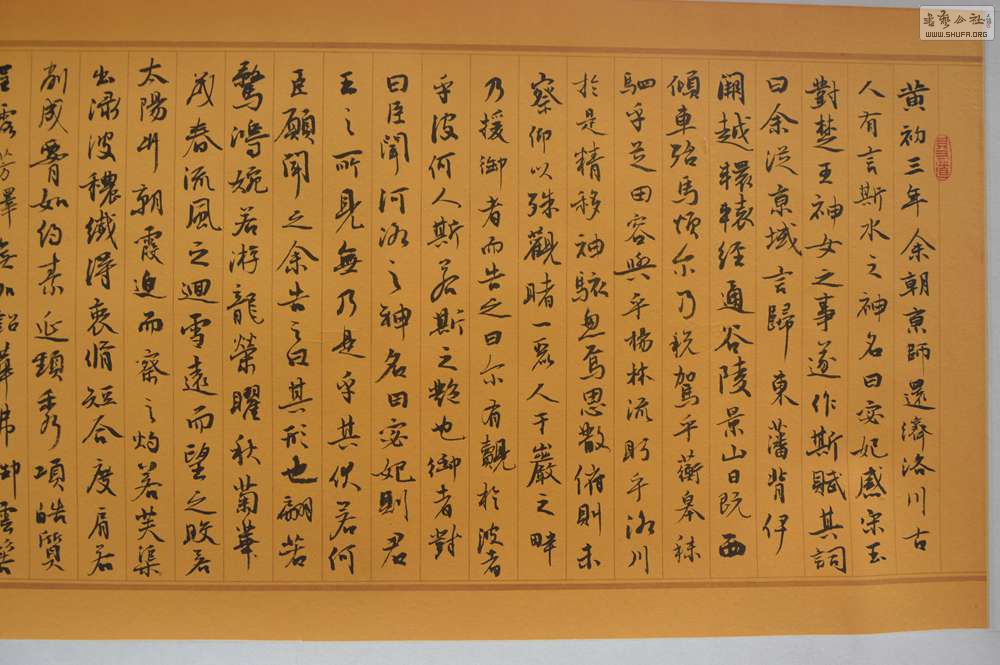 黄初三年余朝京師還濟洛川古
人有言斯水之神名曰宓妃感宋玉
對楚王神女之事遂作斯賦其詞
曰余從京域言歸東藩背伊
闕越轘轅經通谷陵景山日既西
傾車殆馬煩尔乃税駕乎蘅皋秣
駟乎芝田容與乎楊林流眄乎洛川
於是精移神駭忽焉思散俯則未
察仰以殊觀睹一麗人于巖之畔
乃援御者而告之曰尔有覿於彼者
乎彼何人斯若斯之艷也御者對
曰臣聞河洛之神名曰宓妃則君
王之所見無乃是乎其伏若何
臣願聞之余告之曰其形也翩若
驚鴻婉若游龍榮曜秋菊華
茂春流風之迴雪遠而望之皎若
太陽升朝霞迫而察之灼若芙渠
出渌波穠纖得衷脩短合度肩若
削成腰如約素延頸秀項皓質
呈露芳澤無加鉛華弗御雲髻
書藝公社
WWW.SHUFA.ORG